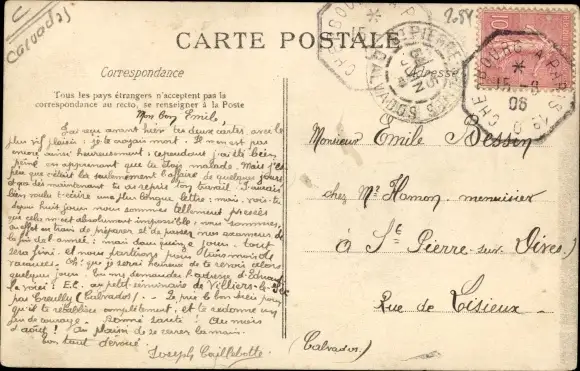 Calvados
CARTE POSTALE
Correspondance
Adresse
Tous les pays étrangers n'acceptent pas la
correspondance au recto, se renseigner à la Poste
CHERBOURG A PARIS
15
06
ST PIERRE
JUIN
Mon bon Emile,
J'ai reçu avant hier tes deux cartes avec le
plus vif plaisir; je te croyais mort. Il n'en est pas
encore ainsi heureusement; cependant j'ai été bien
peiné en apprenant que tu étais malade. Mais j'es-
père que c'était là seulement l'affaire de quelques jours
et que dès maintenant tu as repris ton travail. J'aurais
bien voulu t'écrire une plus longue lettre; mais vois-tu
depuis huit jours nous sommes tellement pressés
que cela m'est absolument impossible; nous sommes
en effet en train de préparer et de passer nos examens de
la fin de l'année; mais dans quinze jours tout
sera fini et nous partirons pour
vacances. Oh! que je serai heureux de te revoir alors
quelques jours. Tu me demandes l'adresse d'Edouard
le voici! E.C. au petit séminaire de Villiers-le-Sec
par Creully (Calvados). Je prie le bon Dieu pour
qu'il te rétablisse complètement, et te redonne un
peu de courage. Bonne santé! Au mois
d'août! Au plaisir de te serrer la main.
Ton tout dévoué
Joseph Caillebotte
Monsieur Emile Bessin
chez Mr Hamon, menuisier
à St Pierre-sur-Dives
Rue de Lisieux
(Calvados)